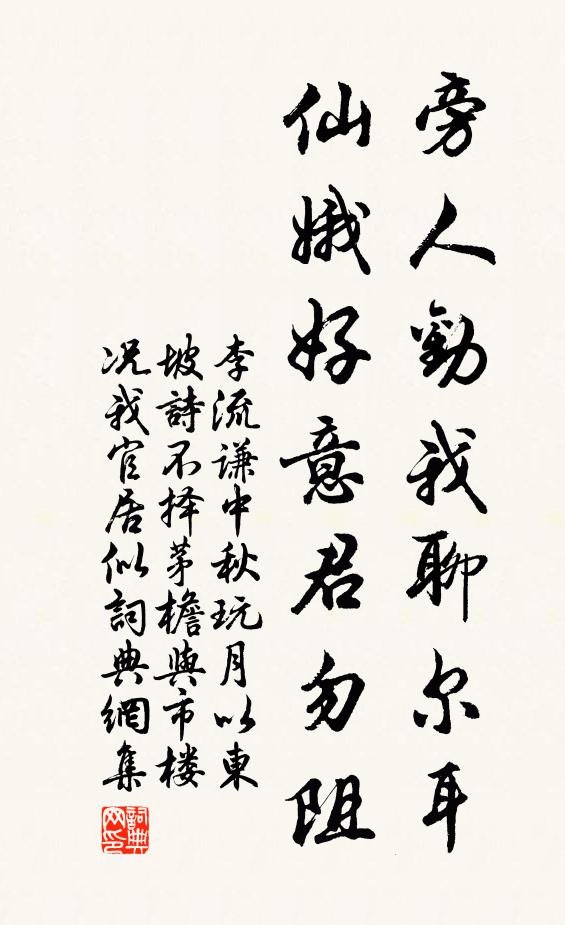 旁人勸我聊尔耳
仙娥好意君勿阻
李流谦中秋玩月以東
坡詩不择茅檐與市楼
况我官居似詞典網集
詞典网印